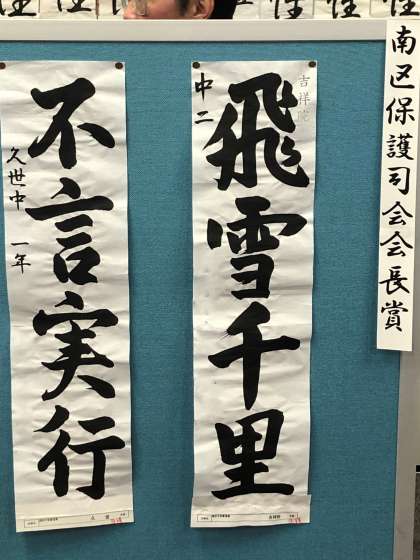 南区保護司会会長賞
飛雪千里
吉祥院
中二
不言実行
久世中 一年